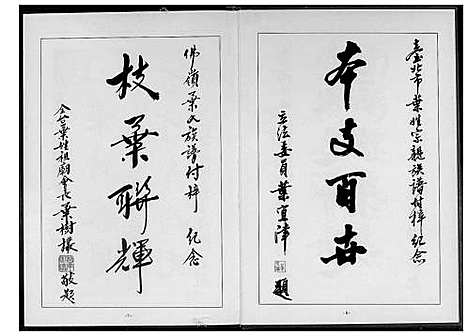 臺北市葉姓宗親族譜付梓紀念
本支百世
立法委員葉宜津
題
佛嶺葉氏族譜付梓 紀念
枝葉聯輝
全世葉姓祖廟會長葉樹根
敬題